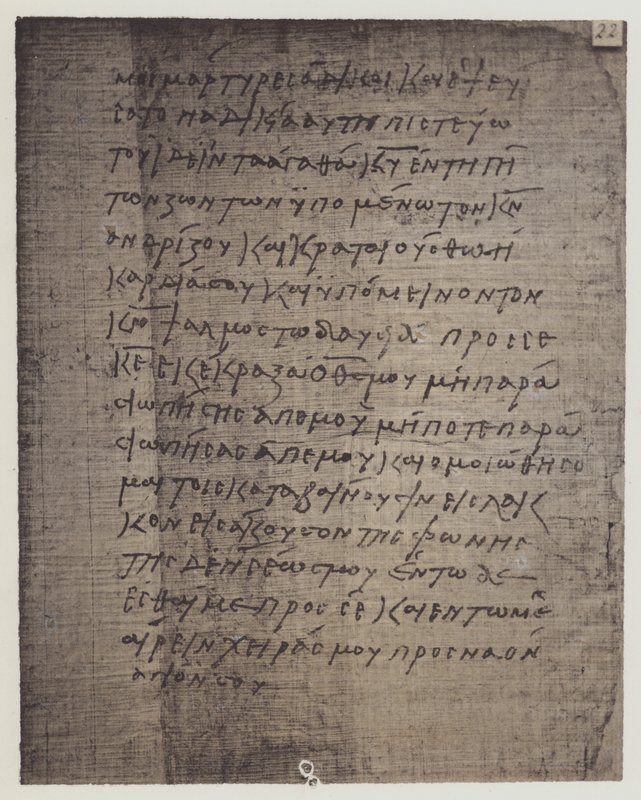 22
μοι μάρτυρες άδικοι καὶ ἐψεύ
σατο ἡ ἀδικία αυτη πιστεύω
τοῦ ἰδεῖν τὰ ἀγαθὰ κ̅υ̅ ἐν τῇ γῇ
των ζωντων ϋπομένω τον κ̅ν̅
ανδρίζου καὶ κραταιούσθω ἡ
καρδιά σου καὶ ϋπόμεινον τον
κ̅ν̅ ψαλμος τω δαυιδ προς σε
κ̅ε̅ ἐκέκραξα ὁ θ̅ς̅ μου μὴ παρα
σιωπήσης ἀπ εμοῦ μήποτε παρα
σιωπήσης ἀπ εμοῦ καὶ ομοιωθήσο
μαι τοις καταβαίνουσιν εις λακ
κον εισάκουσον της φωνης
της δεήσεώς μου ἐν τω δε
εσθαι με προς σε και εν τω με
αἴρειν χεῖράς μου προς ναὸν
αγιόν σου